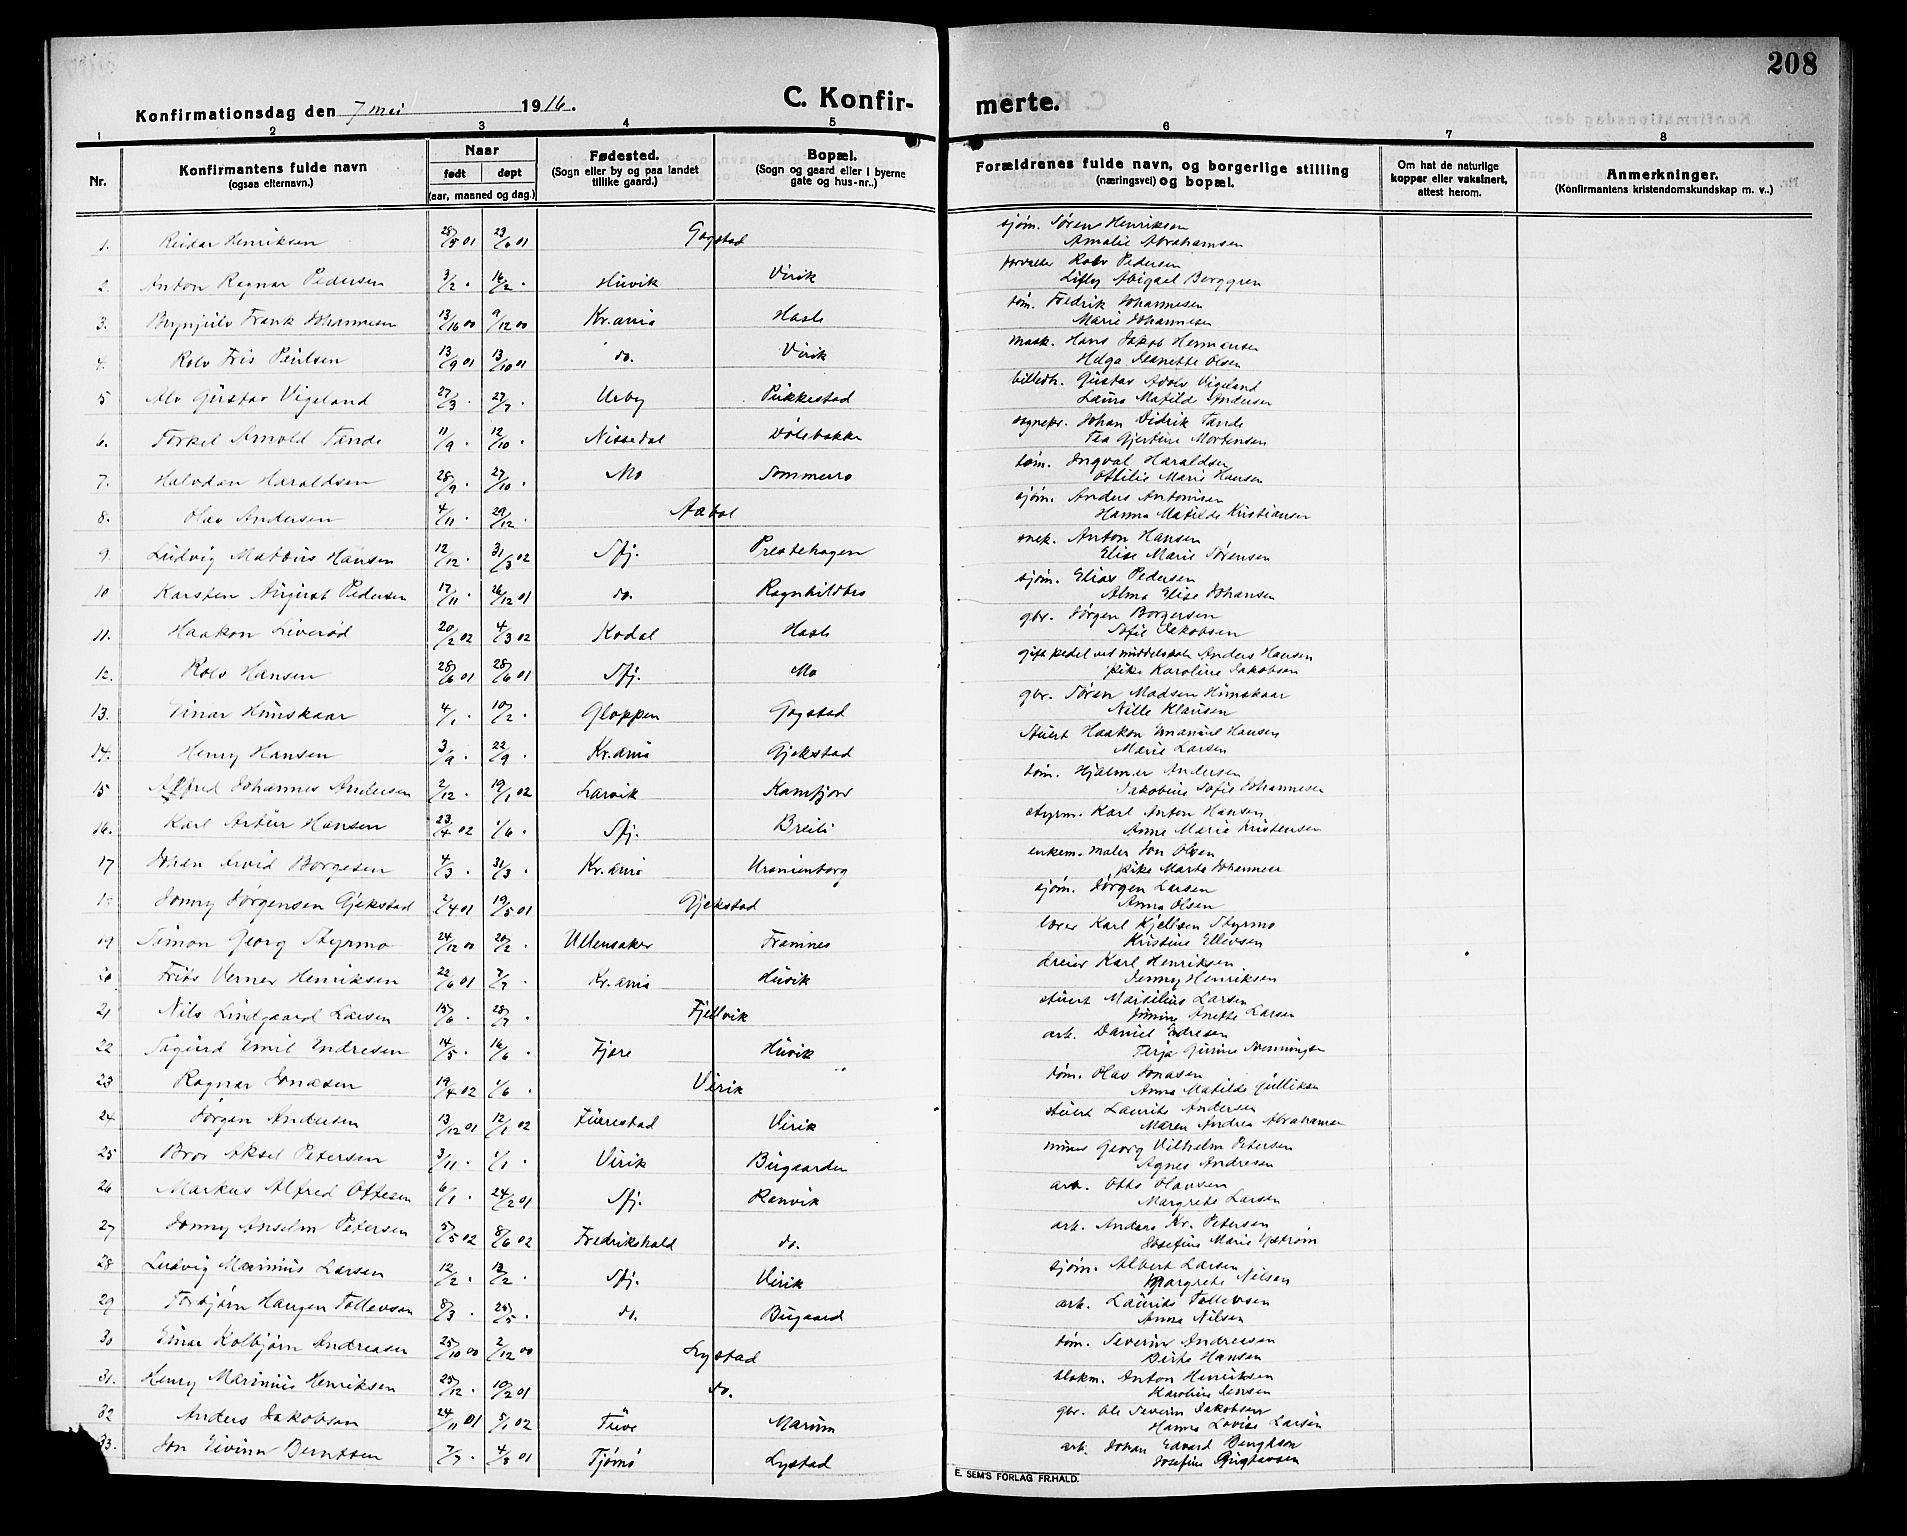 208
Konfirmationsdag den 7 mai 1916.
C. Konfir-merte.
1 2 3 4 5 6 7 8
Nr.
Konfirmantens fulde navn
(ogsaa efternavn.)
Naar
født døpt
(aar, maaned og dag.)
Fødested.
(Sogn eller by og paa landet
tillike gaard.)
Bopæl.
(Sogn og gaard eller i byerne
gate og hus-nr..)
Forældrenes fulde navn, og borgerlige stilling
(næringsvei) og bopæl.
Om hat de naturlige
kopper eller vaksinert,
attest herom.
Anmerkninger.
(Konfirmantens kristendomskundskap m. v..)
1. Reidar Henriksen 28/5 01 23/6 01 Gogstad sjøm. Søren Henriksen
Amalie Abrahamsen
2. Anton Ragnar Pedersen 3/2 . 16/2 . Huvik Virik Rolv Pedersen
Abigael Berggren
3. Brynjulv Frank Johannesen 9/12 00 Kr.ania Hasle tøm. Fredrik Johannesen
Marie Johannesen
4. Rolv Fris Paulsen 13/9 01 13/10 01 do. Virik mask. Hans Jakob Hermansen
Helga Jeanette Olsen
5 Alv Gustav Vigeland 27/3 . 27/7 . Urby Pukkestad billedh. Gustav Adolv Vigeland
Laura Matilde Andersen
6. Torkel Arnold Tande 11/9 . 12/10 . Nissedal Dølebakke sognepr. Johan Didrik Tande
Tea Gjertine Mortensen
7. Halvdan Haraldsen 28/9 . 27/10 . Mo Sommerro tøm. Ingval Haraldsen
Ottilie Marie Hansen
8. Olav Andersen 4/11 . 29/12 . Aabol sjøm. Anders Antonisen
Hanna Matilde Kristiansen
9. Ludvig Mathius Hansen 12/12 . 31/3 02 Sfj. Prestehagen snek. Anton Hansen
Elise Marie Sørensen
10 Karsten August Pedersen 17/11 . 26/12 01 do. Ragnhildbro sjøm. Elias Pedersen
Alma Elise Johansen
11. Haakon Liverød 20/2 02 4/3 02 Kodal Hasle gbr. Jørgen Borgersen
Sofie Jakobsen
12. Rolv Hansen 28/6 01 28/6 01 Sfj. Mo gift pedel ved middelskole Anders Hansen
pike Karoline Jakobsen
13. Einar Humskaar 4/1 . 10/2 . Gloppen Gogstad gbr. Søren Madsen Humskaar
Nille Klausen
14. Henry Hansen 3/9 . 22/9 . Kr.ania Gjekstad Stuert Haakon Emanuel Hansen
Marie Larsen
15 Alfred Johannes Andersen 2/12 . 19/1 02 Larvik Kamfjord tøm. Hjalmar Andersen
Jakobine Sofie Johannesen
16. Karl Artur Hansen 23/4 02 1/6 . Sfj. Breili styrm. Karl Anton Hansen
Anne Marie Kristensen
17 Johan Arvid Borgesen 4/3 . 31/3 . Kr.ania Uranienborg enkem. maler Jon Olsen
pike Marta Johannesen
18 Jonny Jørgensen Gjekstad 2/4 01 19/5 01 Gjekstad sjøm. Jørgen Larsen
Anna Olsen
19 Simon Georg Styrmo 24/12 00 20/2 . Ullensaker Framnes lærer Karl Kjellsen Styrmo
Kristine Ellevsen
20 Frits Verner Henriksen 22/6 01 7/7 . Kr.ania Huvik dreier Karl Henriksen
Jenny Henriksen
21 Nils Lindgaard Larsen 15/6 . 28/7 . Fjellvik stuert Marselius Larsen
Anette Larsen
22 Sigurd Emil Endresen 14/5 . 16/6 . Fjære Huvik arb. Daniel Endresen
Terja Gurine
23 Ragnar Jonasen 19/4 02 1/6 . Virik tøm. Olav Jonasen
Anna Matilde Gulliksen
24 Jørgen Andersen 13/12 01 12/1 02 Furrestad Virik stuert Laurits Andersen
Maren Andrea Abrahamsen
25 Bror Aksel Petersen 3/11 . 1/1 . Virik Bugaarden murer Georg Vilhelm Petersen
Agnes Andresen
26 Markus Alfred Ottesen 6/1 . 24/2 01 Sfj. Ranvik arb. Otto Olausen
Margrete Larsen
27 Jonny Anselm Petersen 5/5 02 8/6 02 Fredrikshald do. arb. Anders Kr. Petersen
Josefine Marie
28 Ludvig Marinius Larsen 12/2 . 12/2 . Sfj. Virik sjøm. Albert Larsen
Margrete Nilsen
29 Torbjørn Haugen Tollevsen 8/3 . 25/5 . do. Bugaard arb. Laurits Tollevsen
Anna Nilsen
30 Einar Kolbjørn Andreasen 25/10 00 2/12 00 Lystad tøm. Severin Andreasen
Berte Hansen
31. Henry Marinius Henriksen 25/12 . 10/2 01 do. blokm. Anton Henriksen
Karoline Jensen
32 Anders Jakobsen 24/11 01 5/1 02 Tuve Marum gbr. Ole Severin Jakobsen
Hanna Lovise Larsen
33. Jon Eivinn Berntsen 7/7 . 4/8 01 Tjømø Lystad arb. Johan Edvard Bengtson
Josefine Gustavsen
E. SEM'S FORLAG FR.HALD.